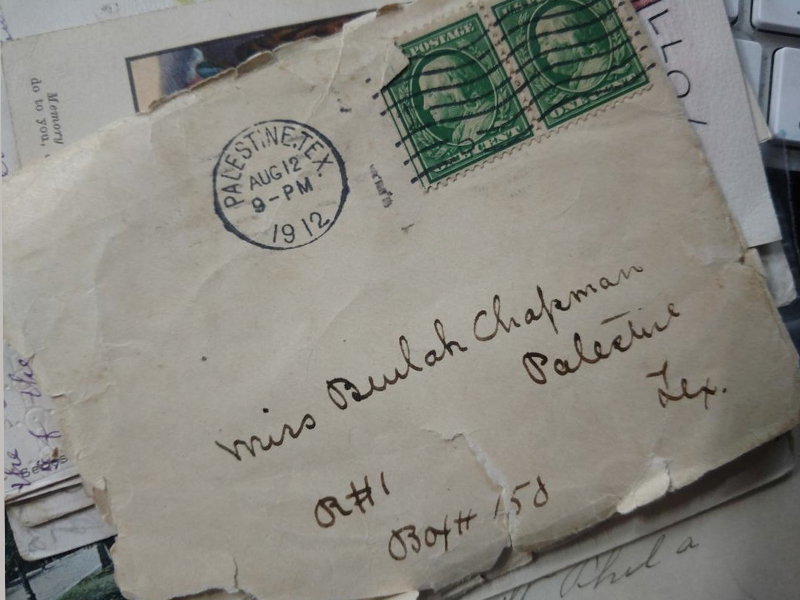 Memory
do to you,
LLO
POSTAGE
ONE CENT
PALESTINE, TEX.
AUG 12
9-PM
1912
Miss Beulah Chapman
Palestine
Tex.
R#1
Box# 158
Phila
the
of the